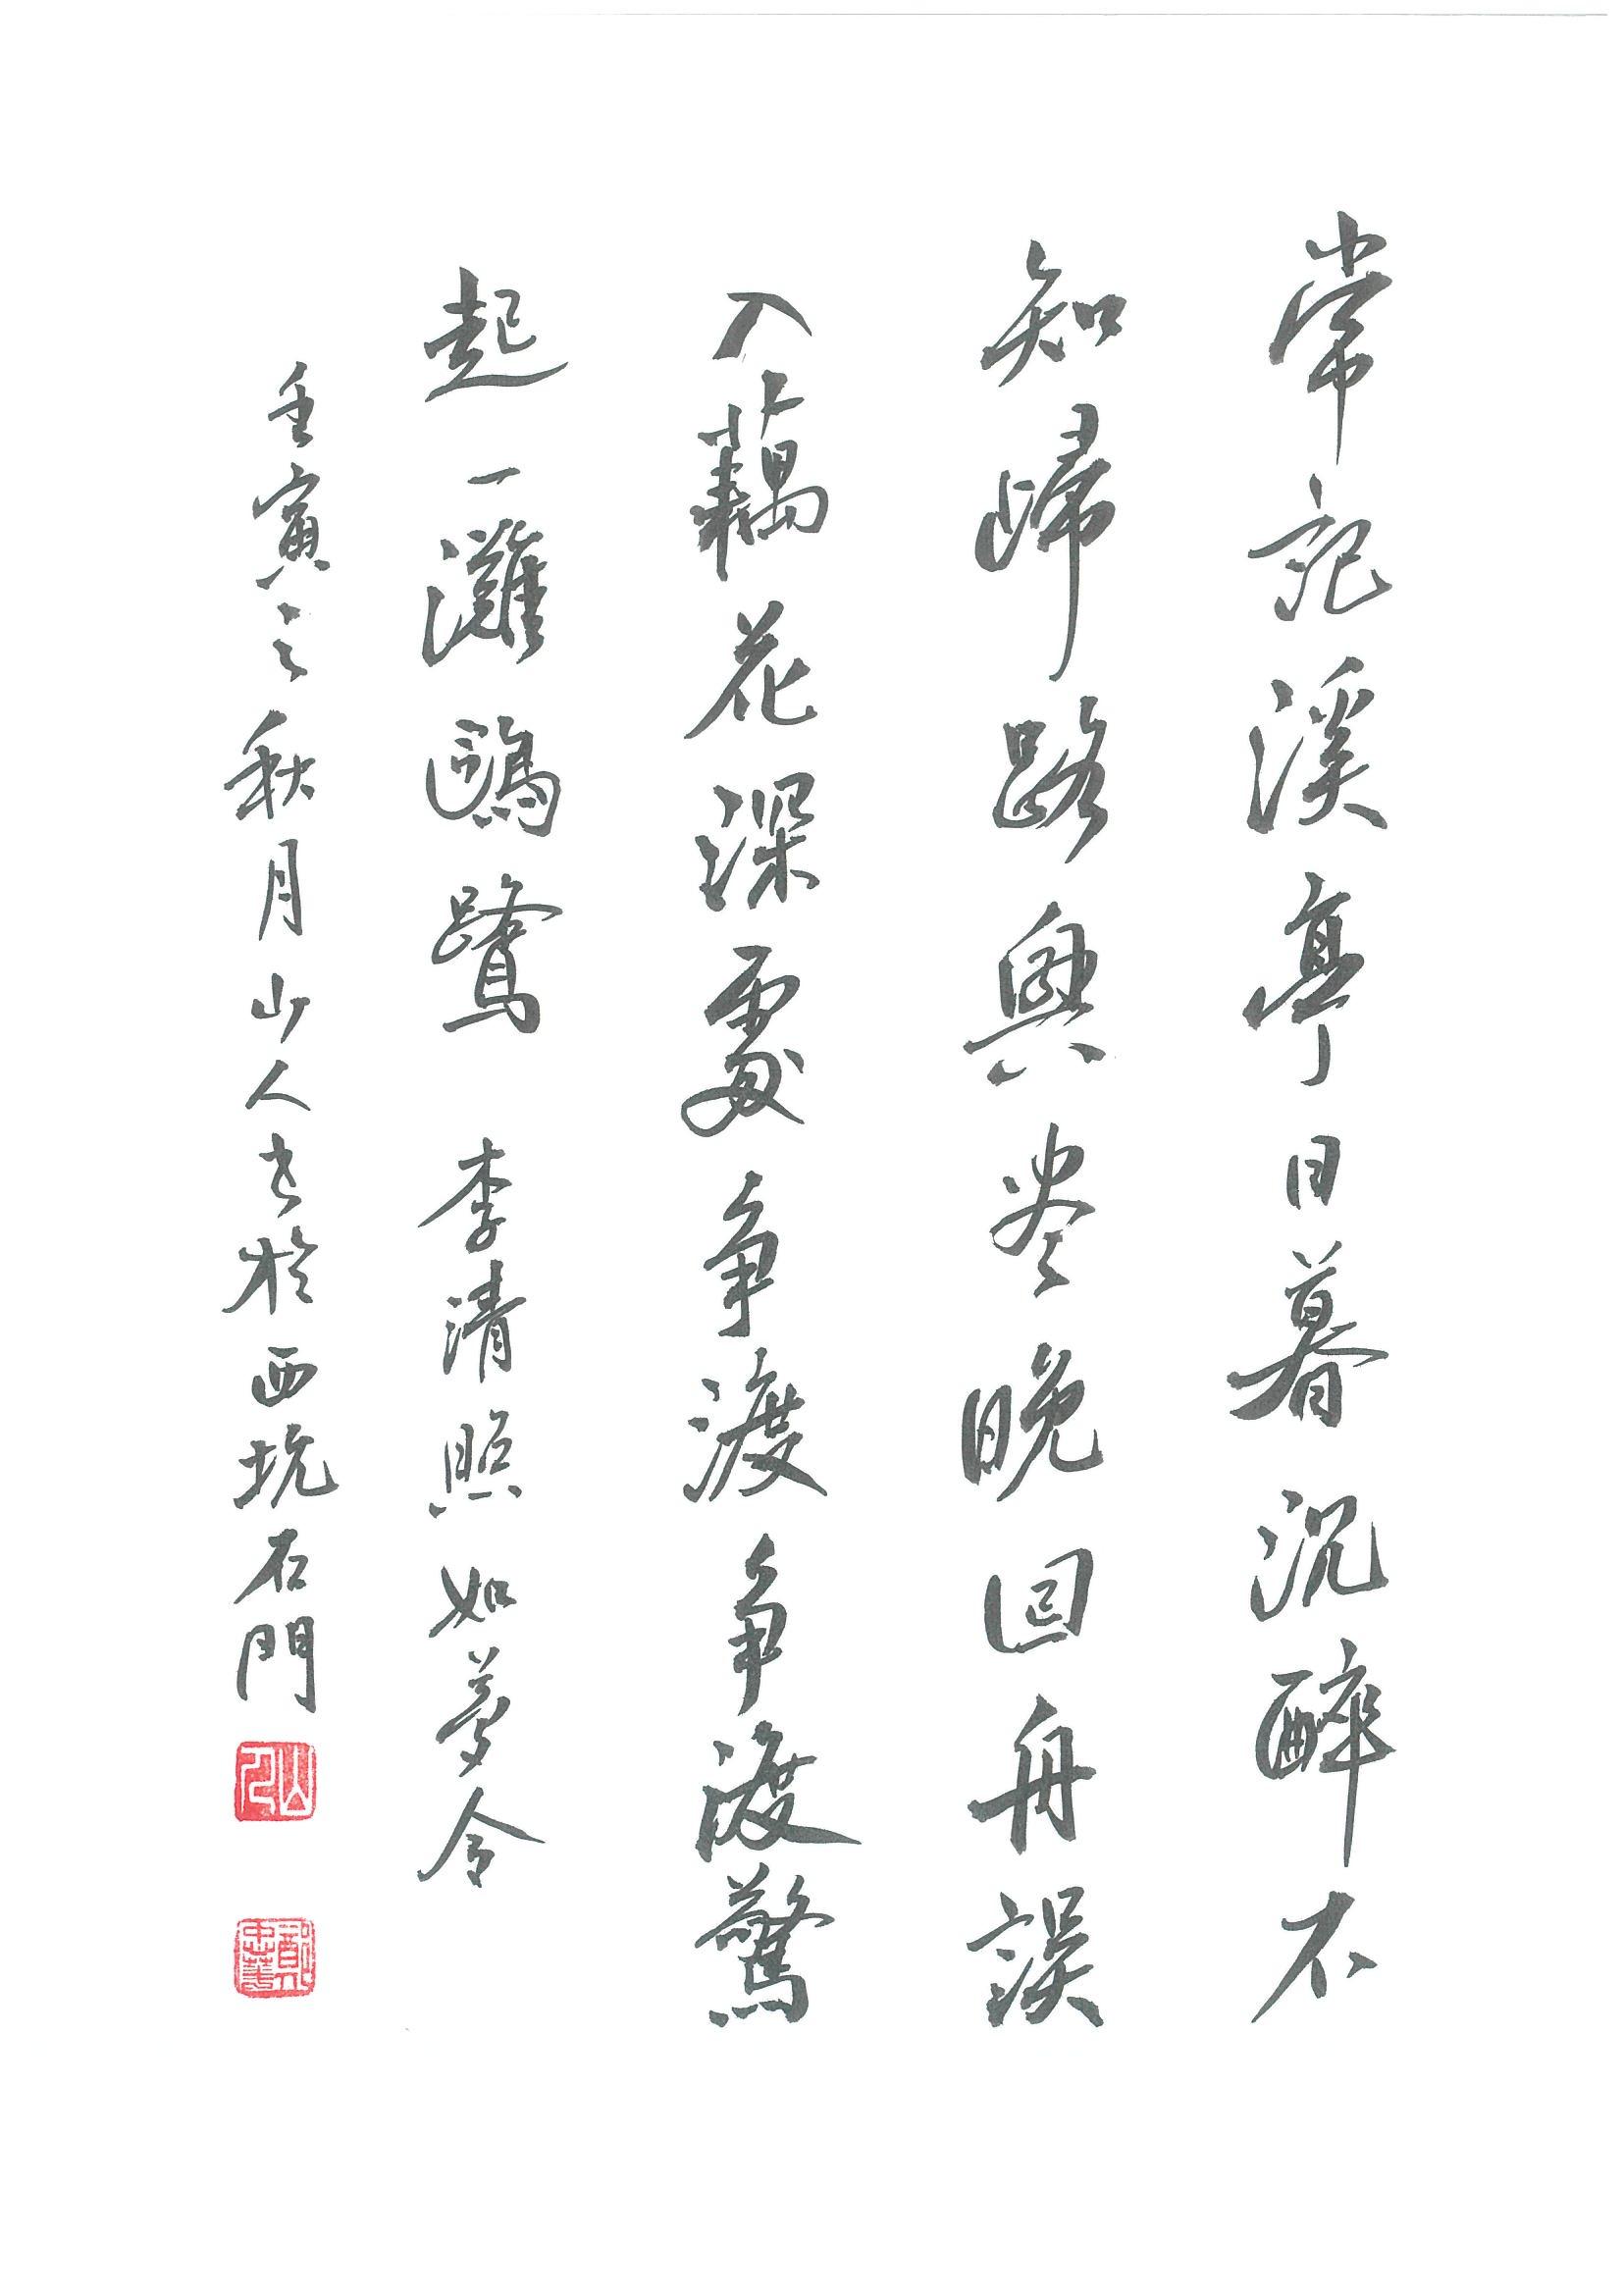 常記溪亭日暮沉醉不
知歸路興尽晚回舟誤
入藕花深處争渡争渡驚
起一灘鷗鷺 李清照如夢令
壬寅之秋月山人书於西坑石門
山人